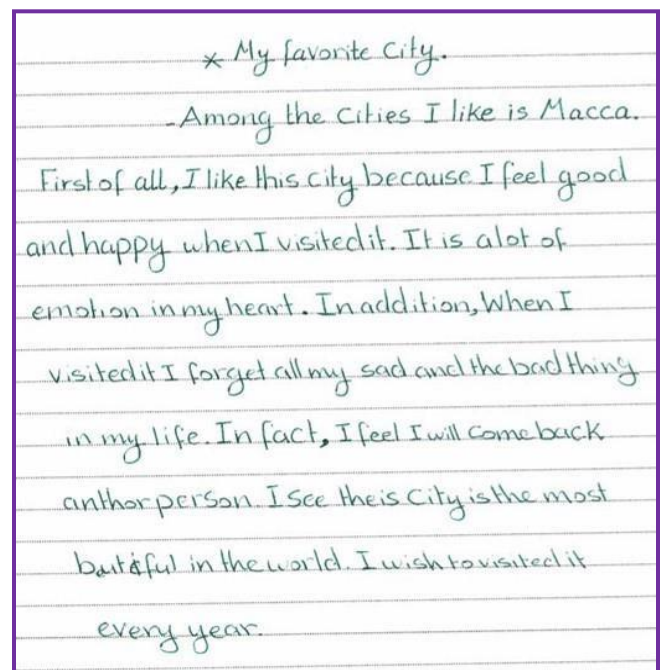 * My favorite City.
-Among the cities I like is Macca.
First of all, I like this city because I feel good
and happy when I visited it. It is alot of
emotion in my heart. In addition, When I
visited it I forget all my sad and the bad thing
in my life. In fact, I feel I will come back
anthor person. I see theis City is the most
bautiful in the world. I wish to visited it
every year.